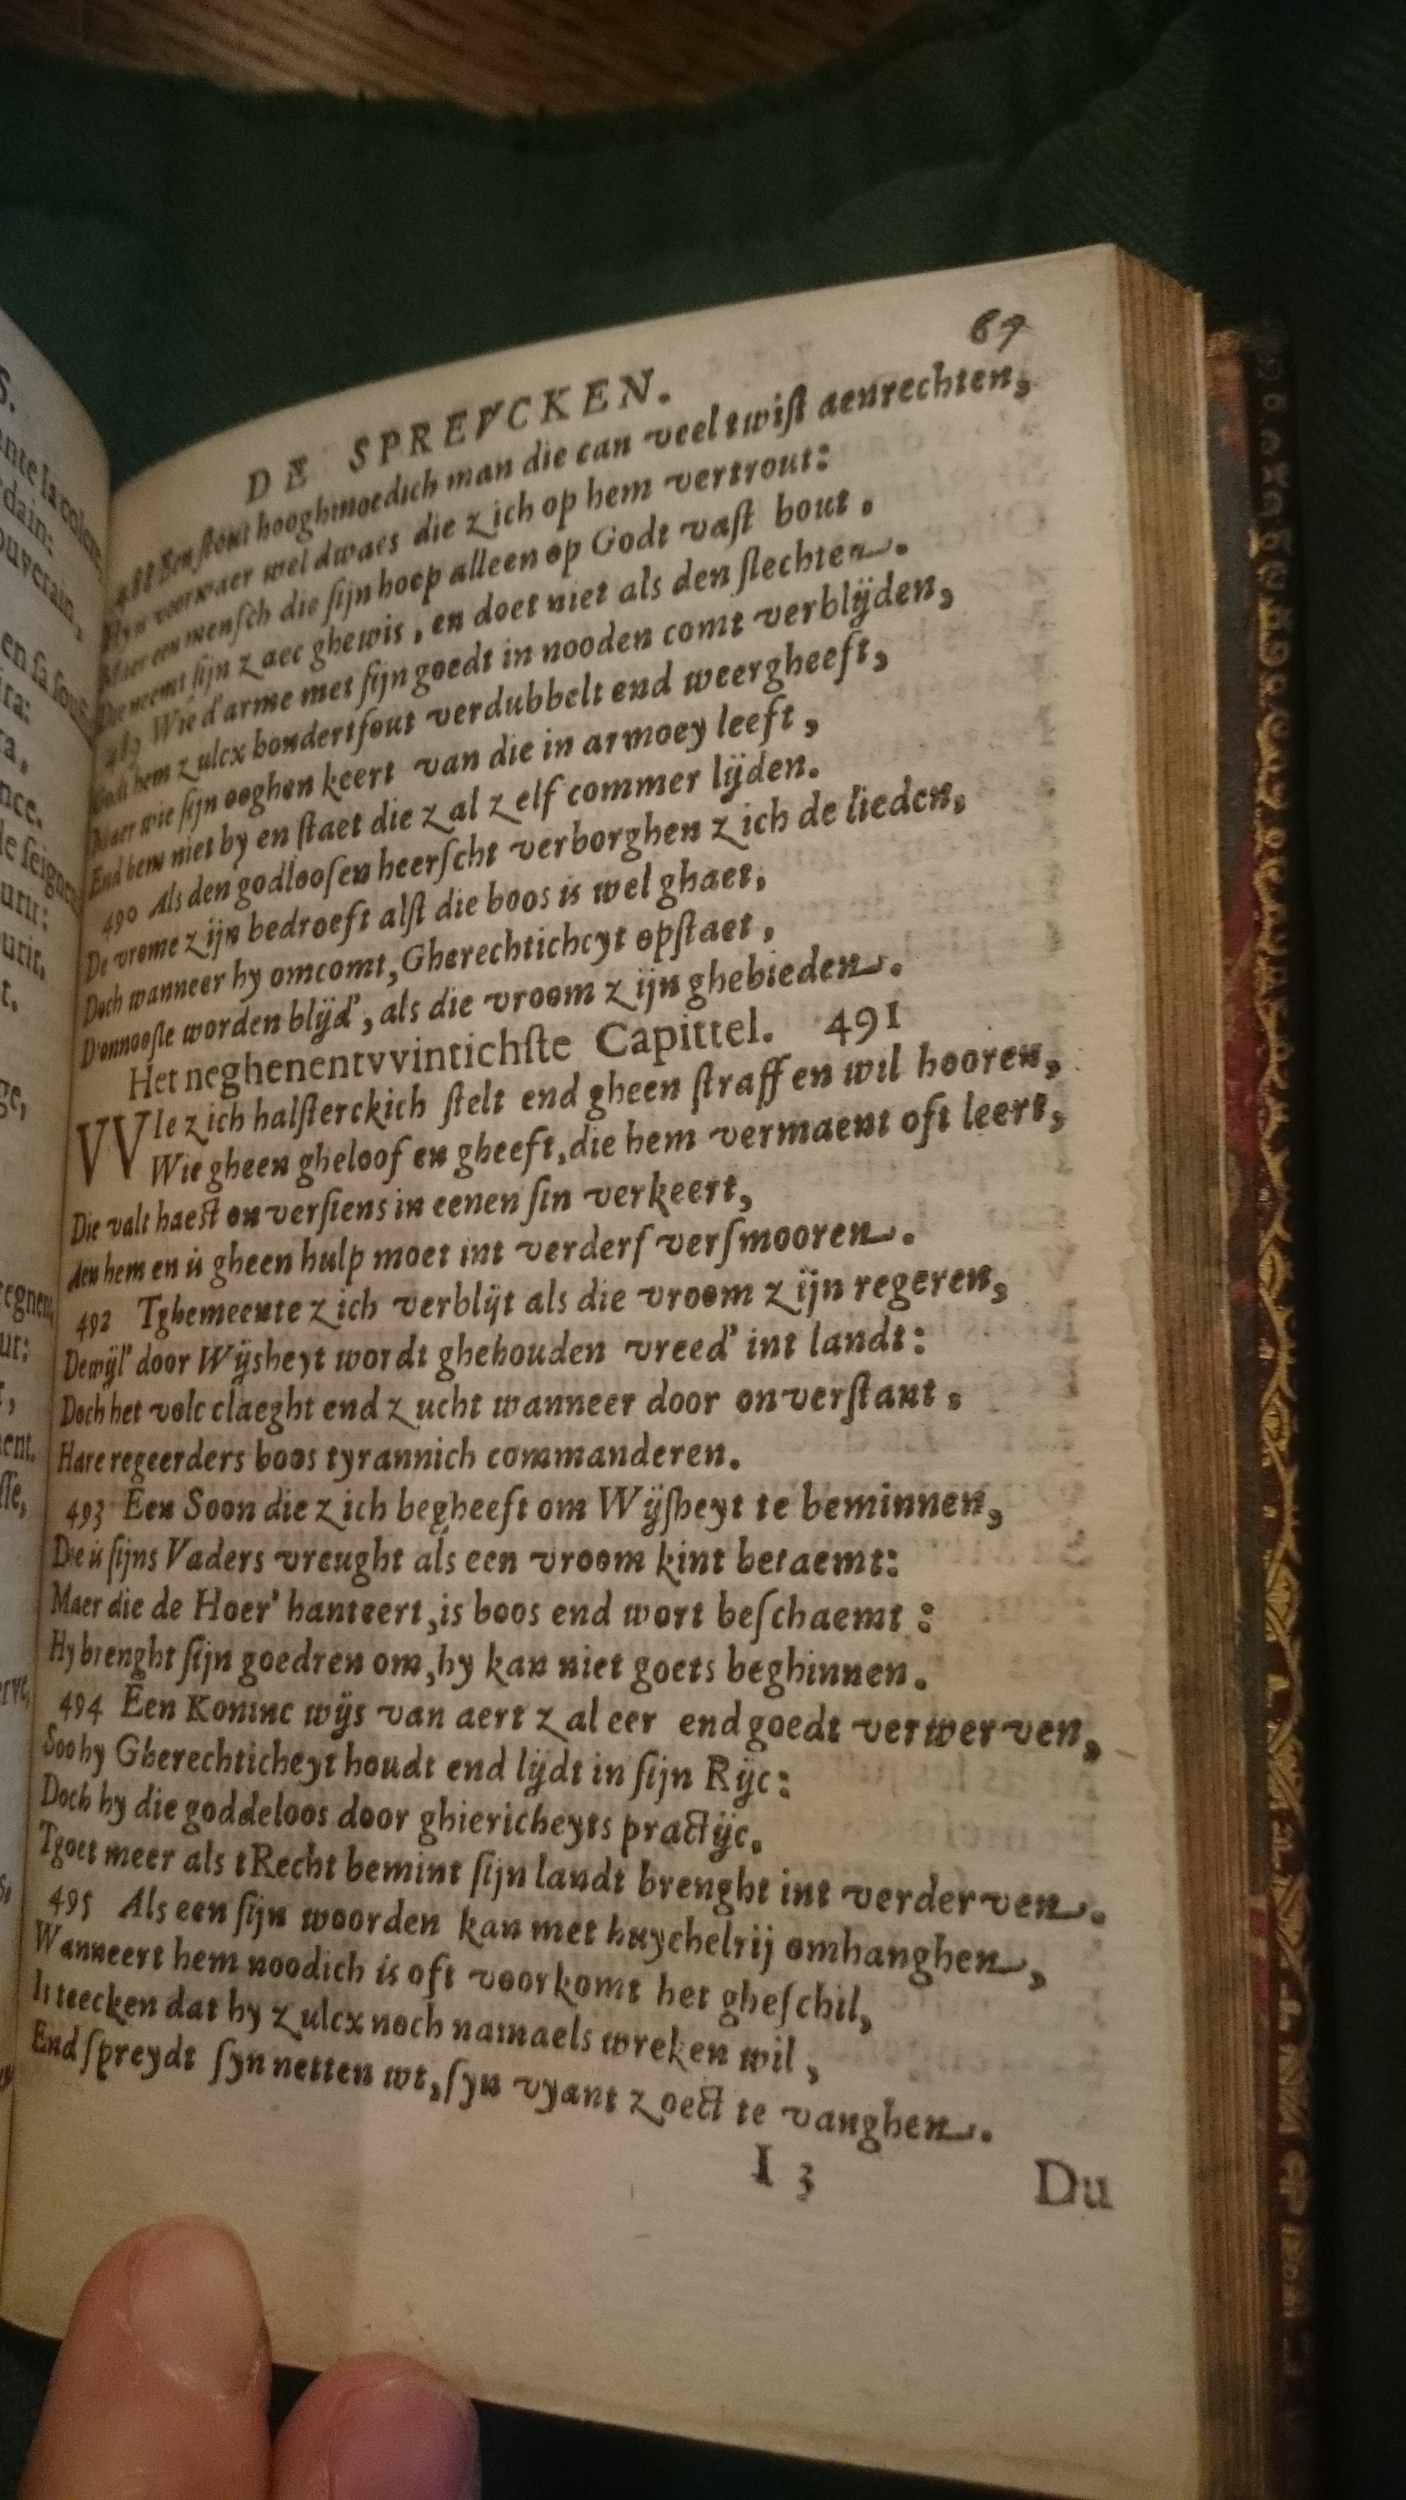 69
DE SPREVCKEN.
488 Een ſtout hooghmoedich man die can veel twiſt aenrechten,
Hy is voorwaer wel dwaes die zich op hem vertrout:
Maer een menſch die ſijn hoep alleen op Godt vaſt bout.
Die neemt ſijn zaec ghewis, en doet niet als den ſlechten.
489 Wie d'arme met ſijn goedt in nooden comt verblijden,
Godt hem zulcx hondertfout verdubbelt end weergheeft,
Maer wie ſijn ooghen keert van die in armoey leeft,
End hem niet by en ſtaet die zal zelf commer lijden.
490 Als den godlooſen heerſcht verborghen zich de lieden,
De vrome zijn bedroeft alſt die boos is wel ghaet,
Doch wanneer hy omcomt, Gherechticheyt opſtaet,
D'onnooſle worden blijd', als die vroom zijn ghebieden.
Het neghenentvvintichſte Capittel. 491
VVIe zich halſterckich ſtelt end gheen ſtraff en wil hooren,
Wie gheen gheloof en gheeft, die hem vermaent oft leert,
Die valt haeſt onverſiens in eenen ſin verkeert,
den hem en is gheen hulp moet int verderf verſmooren.
492 Tghemeente zich verblijt als die vroom zijn regeren,
Dewijl' door Wijsheyt wordt ghehouden vreed' int landt:
Doch het volc claeght end zucht wanneer door onverſtant,
Hare regeerders boos tyrannich commanderen.
493 Een Soon die zich begheeft om Wijſheyt te beminnen,
Die is ſijns Vaders vreught als een vroom kint betaemt:
Maer die de Hoer' hanteert, is boos end wort beſchaemt:
Hy brenght ſijn goedren om, hy kan niet goets beghinnen.
494 Een Koninc wijs van aert zal eer end goedt verwerven,
Soo hy Gherechticheyt houdt end lijdt in ſijn Rijc:
Doch hy die goddeloos door ghiericheyts practijc,
Tgoet meer als tRecht bemint ſijn landt brenght int verderven.
495 Als een ſijn woorden kan met huychelrij omhanghen,
Wanneert hem noodich is oft voorkomt het gheſchil,
Is teecken dat hy zulcx noch namaels wreken wil,
End ſpreydt ſyn netten wt, ſyn vyant zoect te vanghen.
I 3
Du